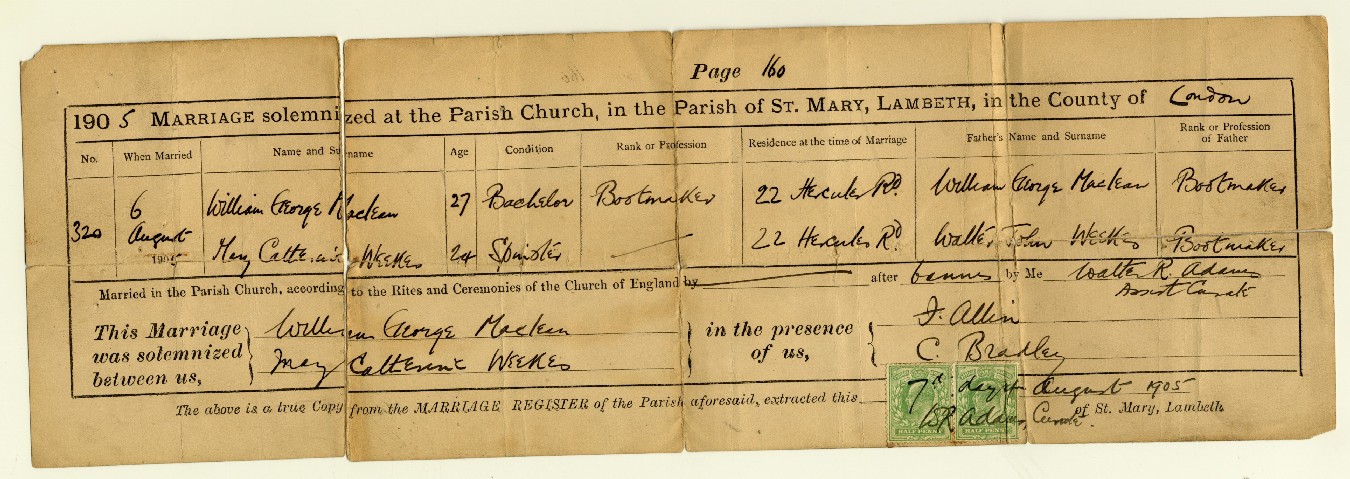 Page 160
1905 MARRIAGE solemnized at the Parish Church, in the Parish of ST. MARY, LAMBETH, in the County of London
No. When Married Name and Surname Age Condition Rank or Profession Residence at the time of Marriage Father's Name and Surname Rank or Profession of Father
320 6 August 1905
William George Maclean 27 Bachelor Bootmaker 22 Hercules Rd. William George Maclean Bootmaker
Mary Catherine Weekes 24 Spinster 22 Hercules Rd Walter John Weekes Bootmaker
Married in the Parish Church, according to the Rites and Ceremonies of the Church of England by after banns by Me Walter R. Adams
Assist Curate
This Marriage was solemnized between us,
William George Maclean
Mary Catherine Weekes
in the presence of us,
F. Allin
C. Bradley
The above is a true Copy from the MARRIAGE REGISTER of the Parish aforesaid, extracted this 7th day of August 1905
W.R. Adams, Curate of St. Mary, Lambeth.
HALF PENNY HALF PENNY